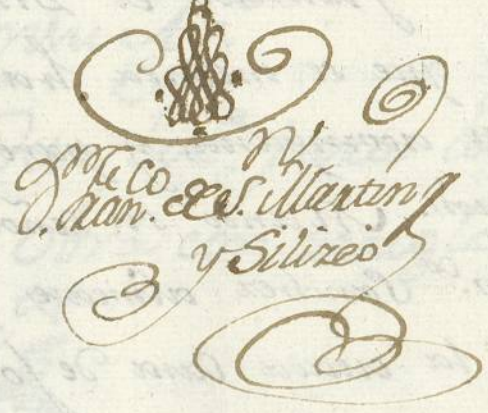 D. Fran.co de S.n Martin
y Silizeo